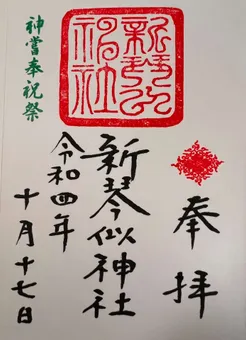 奉拝
新琴似神社
令和四年
十月十七日
神嘗奉祝祭
新琴似神社